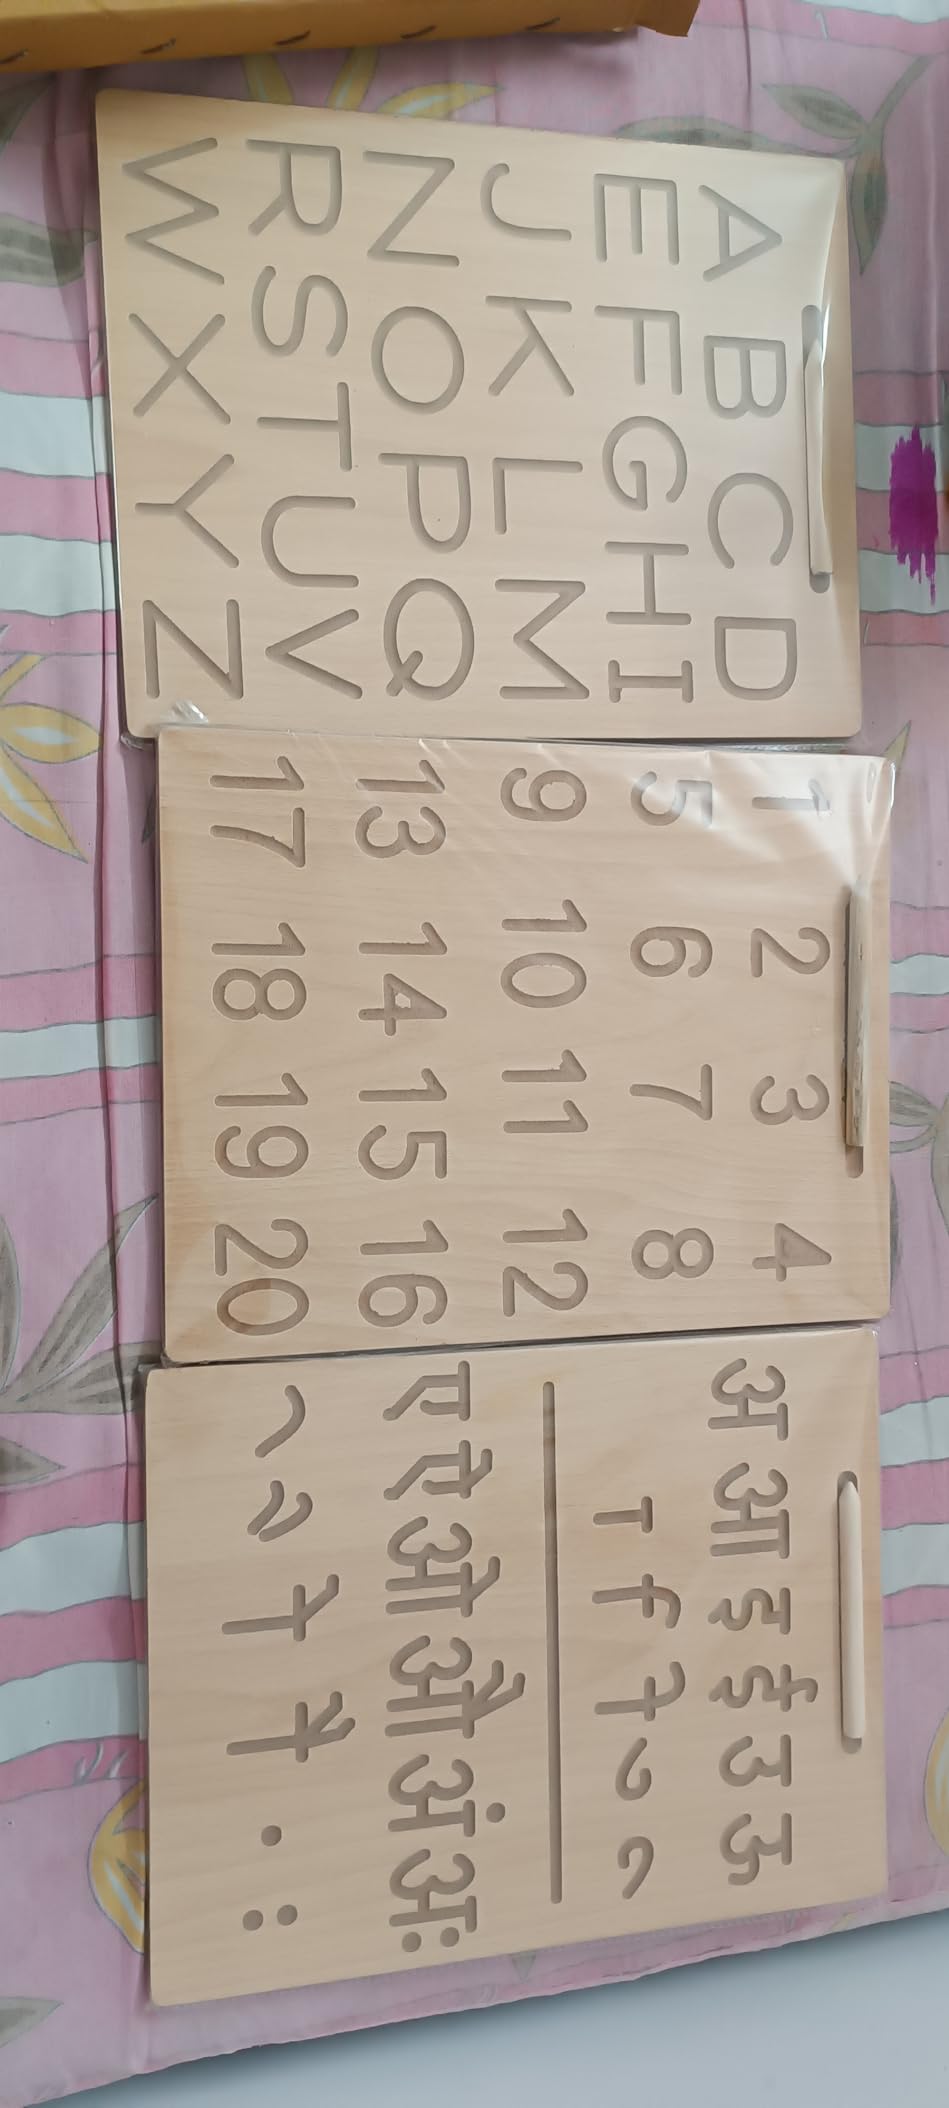 A B C D
E F G H I
J K L M
N O P Q
R S T U V
W X Y Z
1 2 3 4
5 6 7 8
9 10 11 12
13 14 15 16
17 18 19 20
अ आ इ ई उ ऊ
ा ि ी ु ू
ए ऐ ओ औ अं अः
े ै ो ौ ं ः